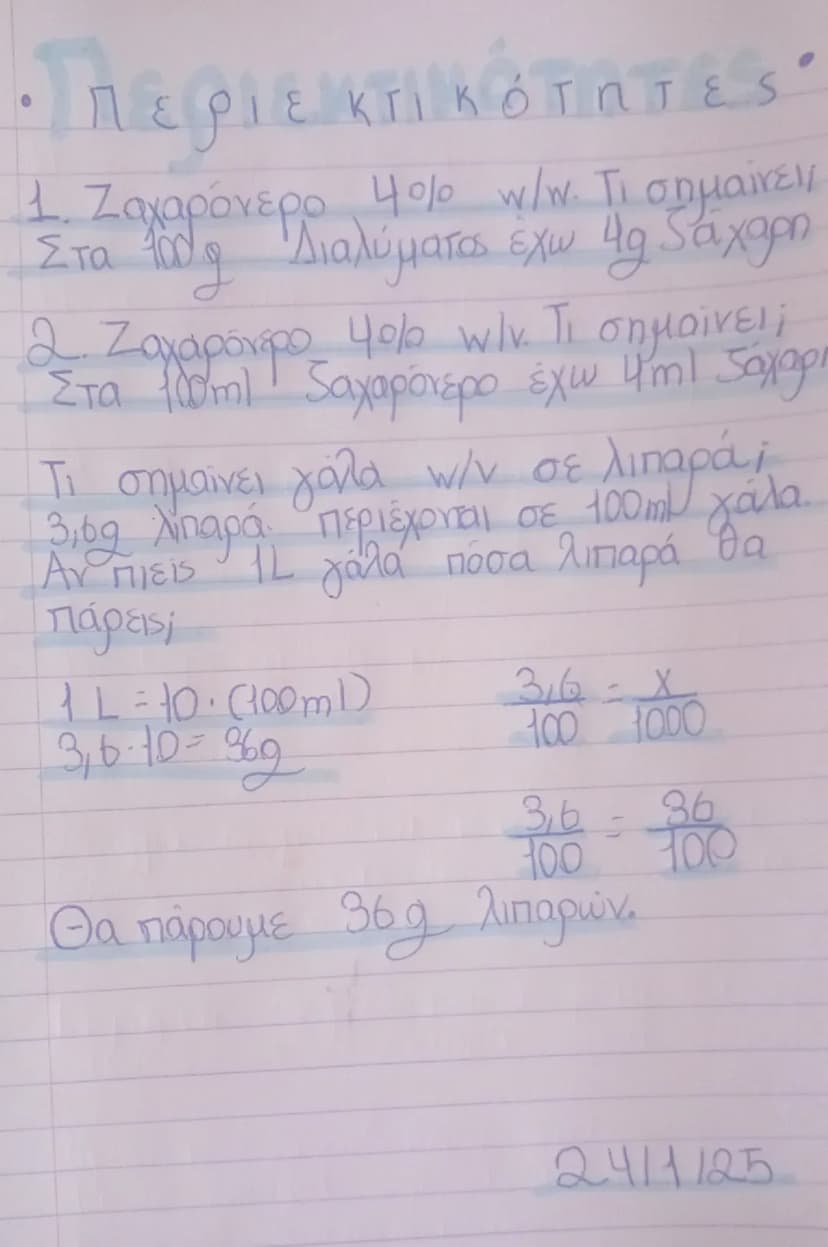 • Περιεκτικότητες •
1. Ζαχαρόνερο 4% w/w. Τι σημαίνει;
Στα 100g Διαλύματος έχω 4g ζάχαρη
2. Ζαχαρόνερο 4% w/v. Τι σημαίνει;
Στα 100ml ζαχαρόνερο έχω 4ml ζάχαρη
Τι σημαίνει γάλα w/v σε λιπαρά;
3,6g λιπαρά περιέχονται σε 100ml γάλα.
Αν πιείς 1L γάλα πόσα λιπαρά θα
πάρεις;
1 L = 10 · (100ml)
3,6 · 10 = 36g
3,6/100 = x/1000
3,6/100 = 36/100
Θα πάρουμε 36g λιπαρών.
24/1/25